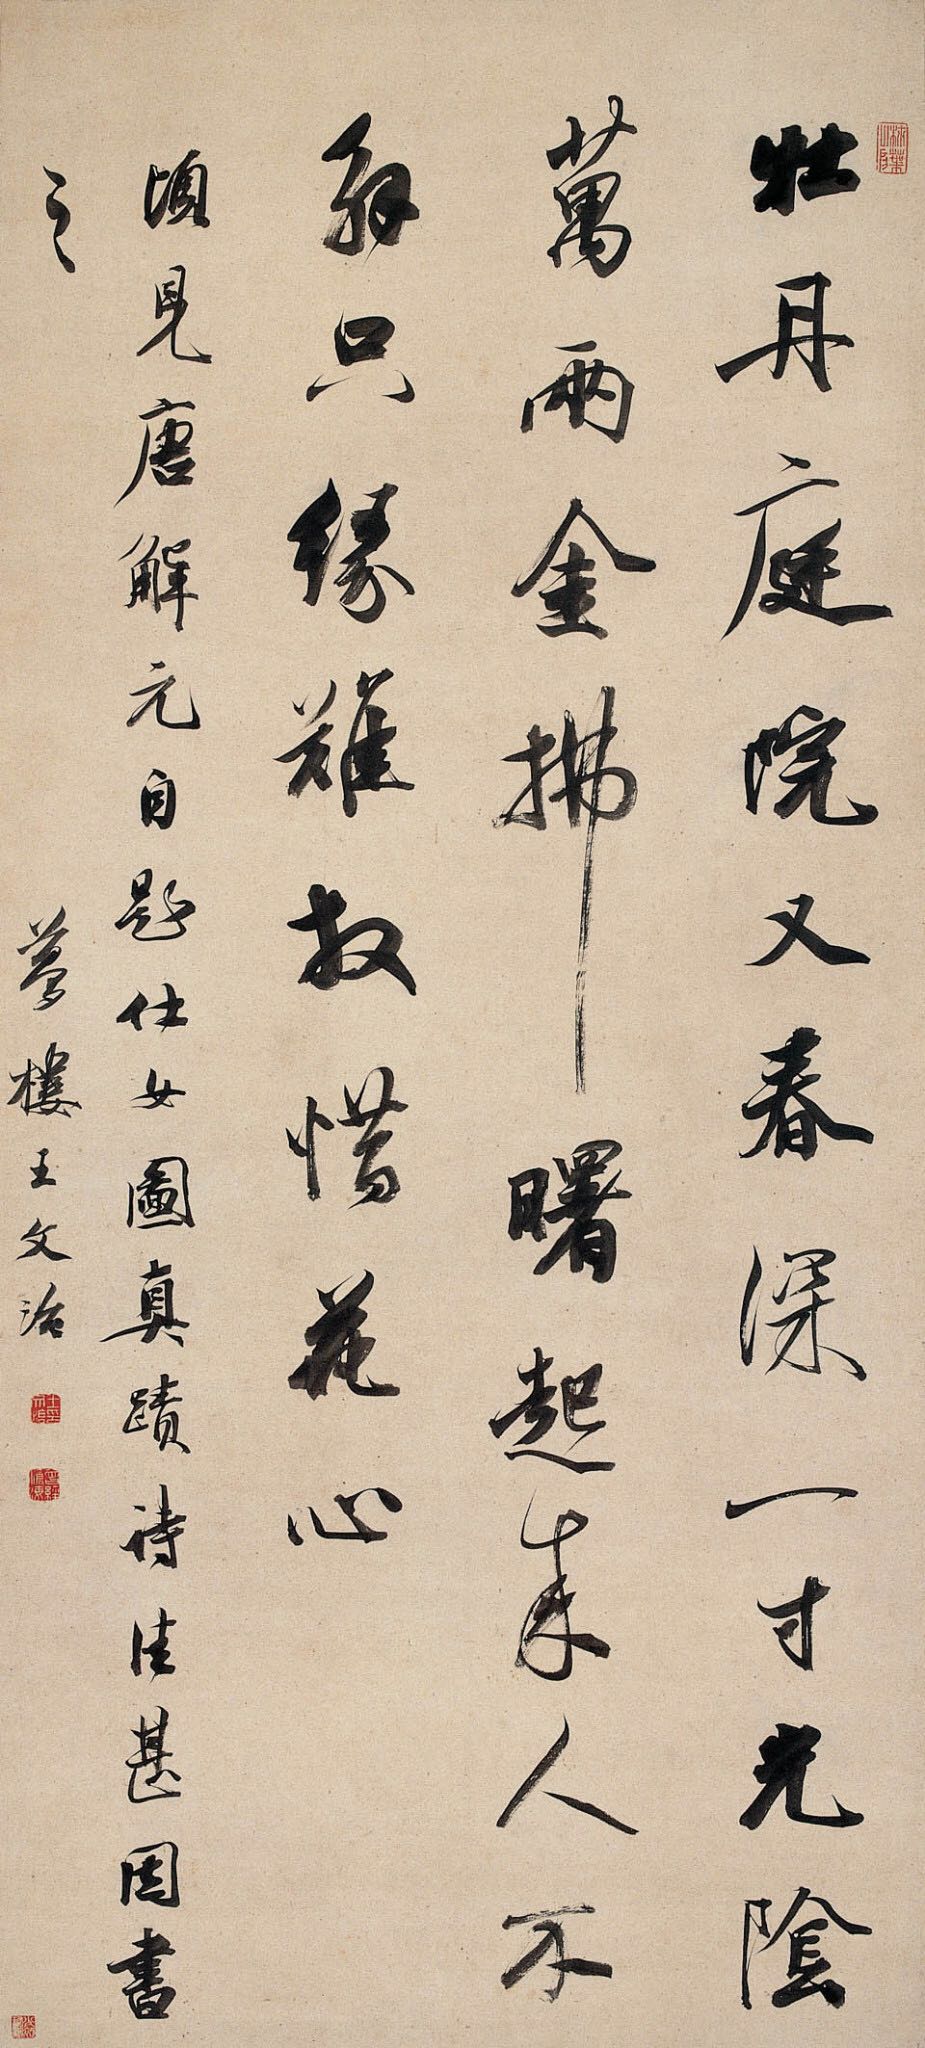 牡丹庭院又春深一寸光陰
萬兩金拂曙起来人不
解只緣難放惜花心
頃見唐解元自題仕女圖真蹟詩佳甚因書
之
夢樓王文治